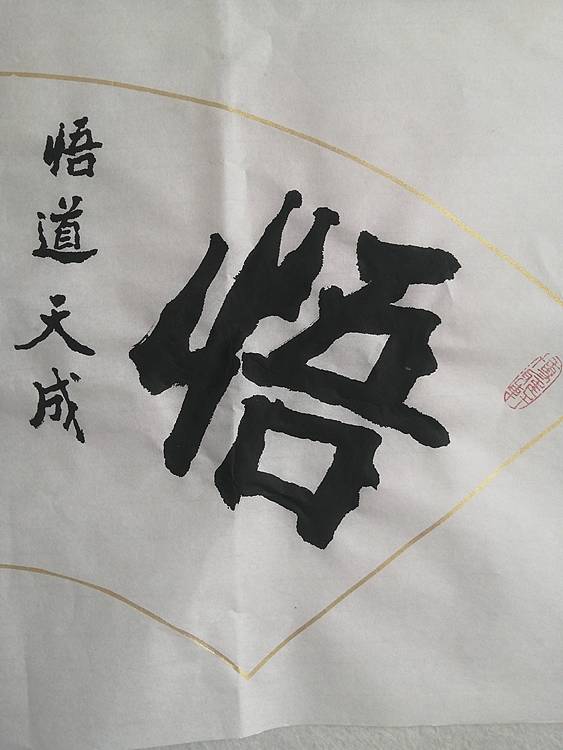 悟
悟道天成